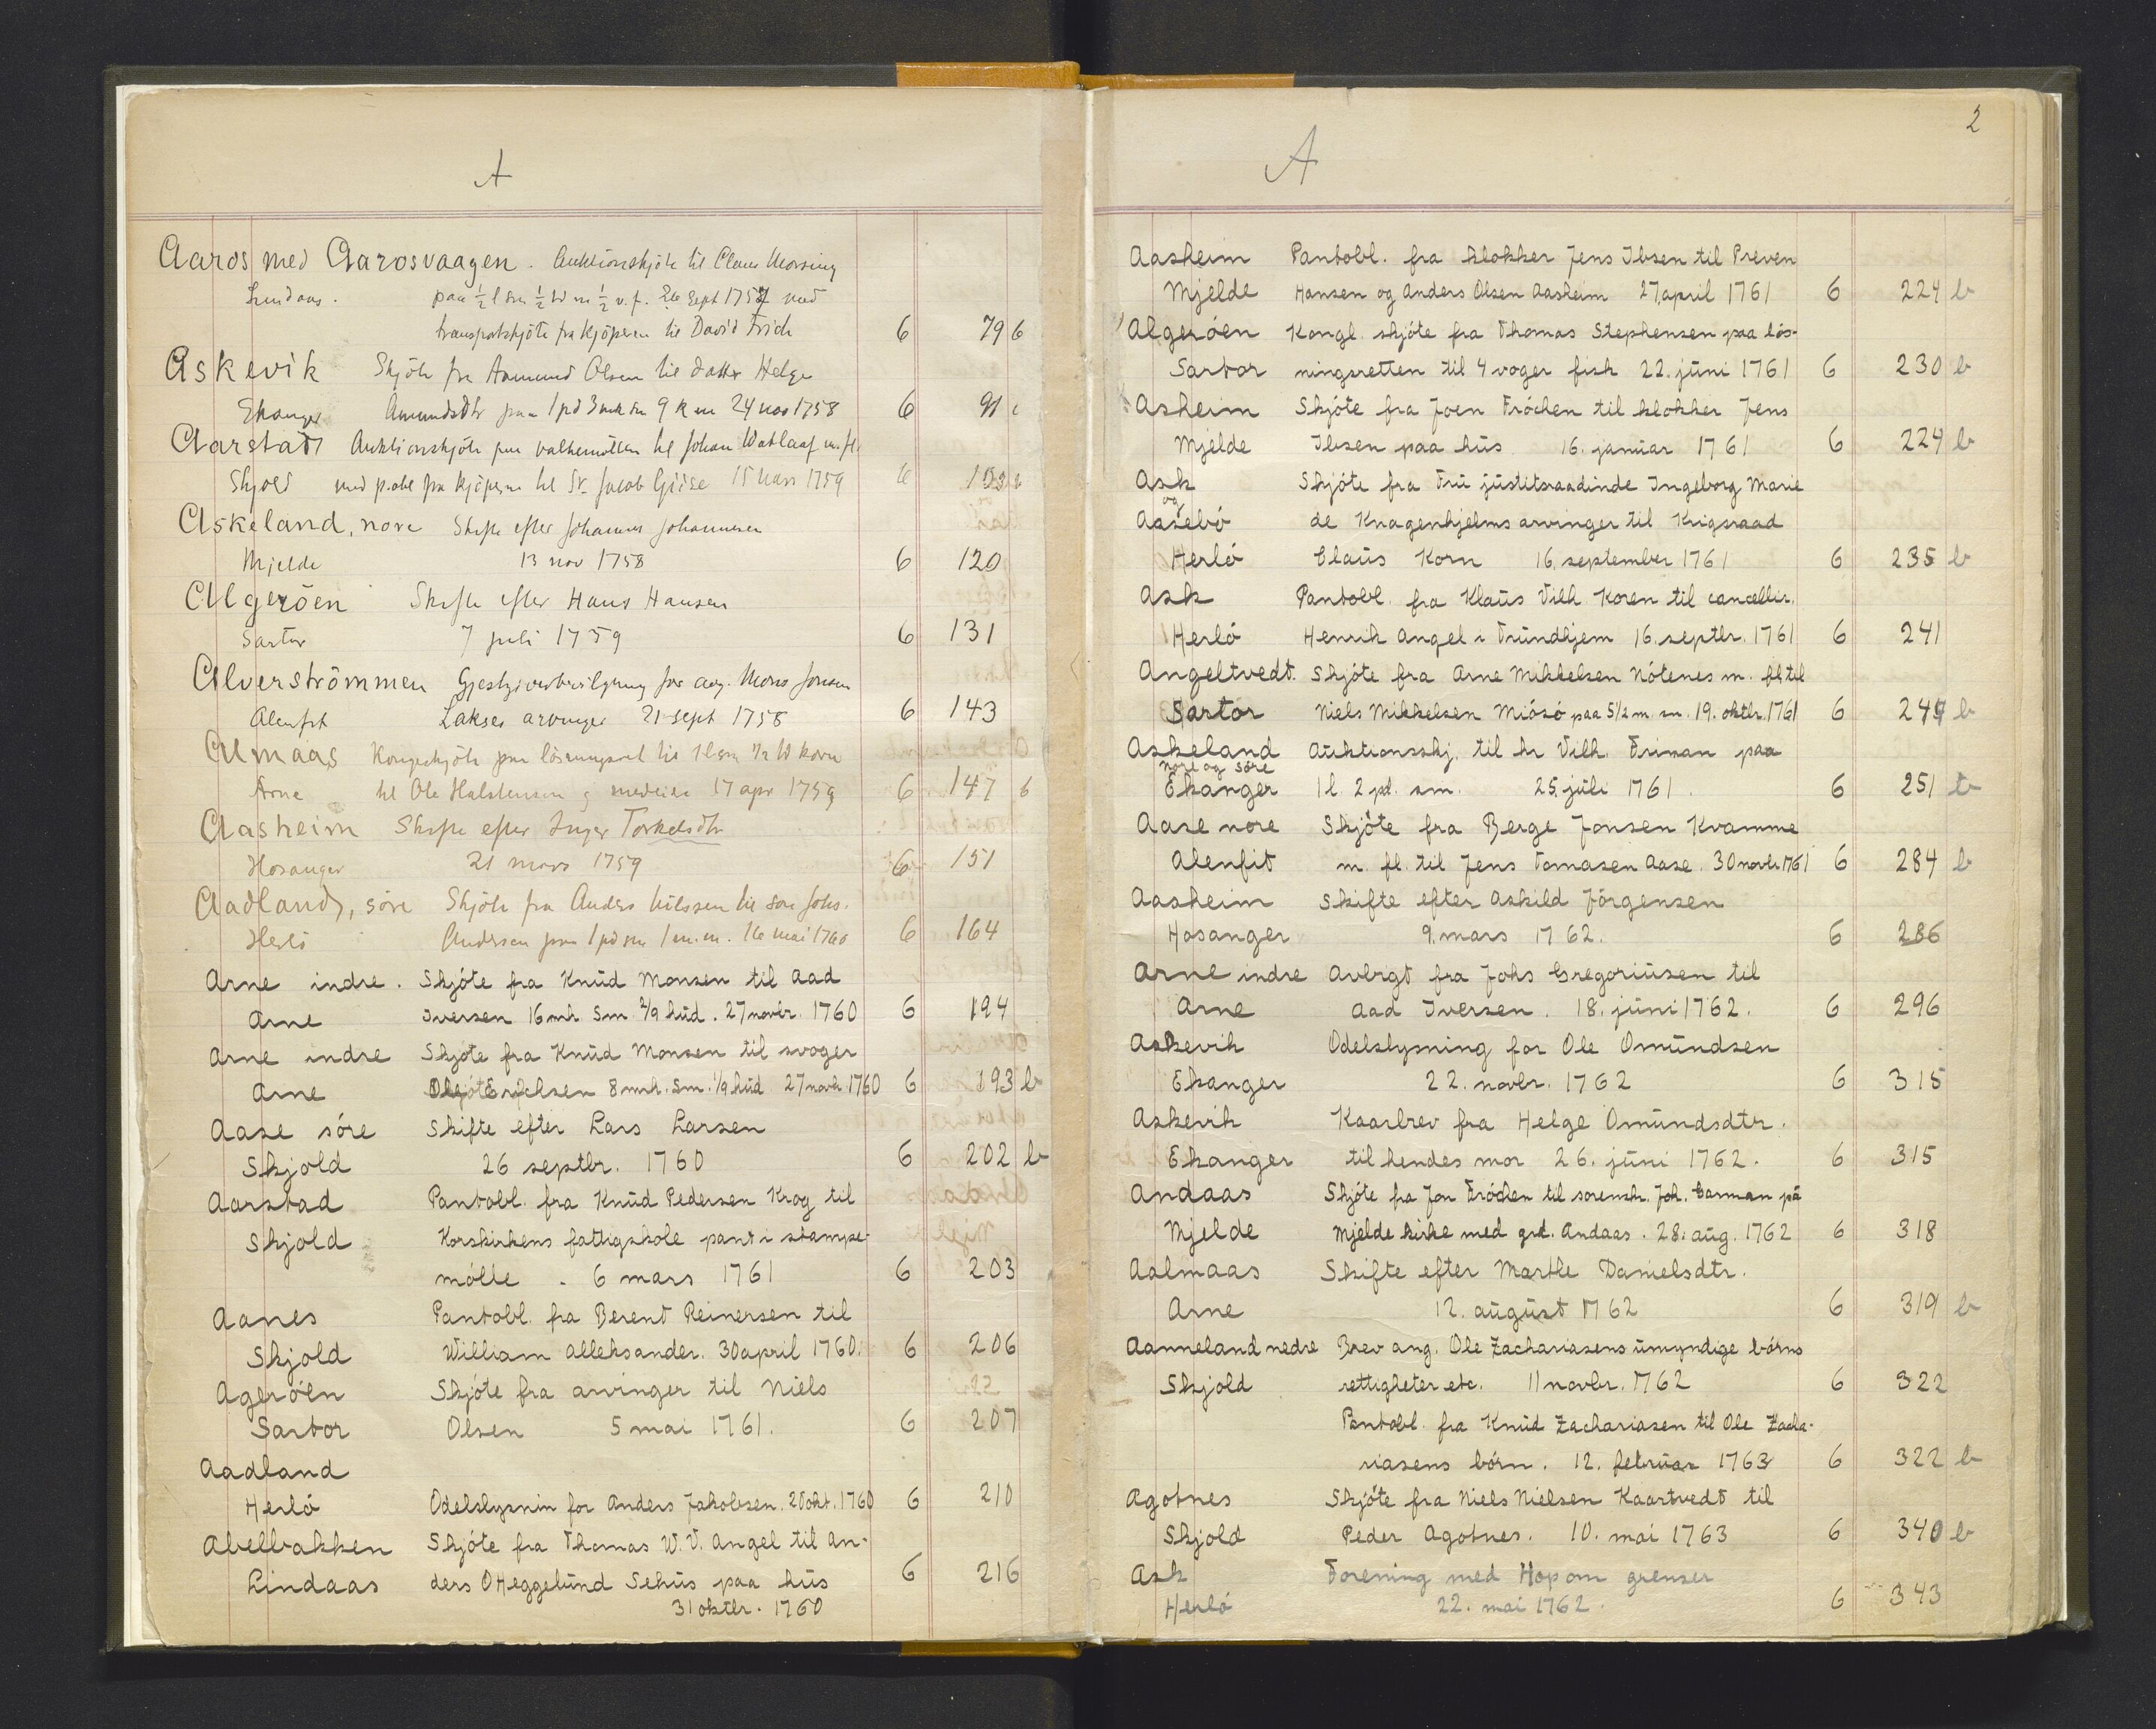 A
Aaros med Aarosvaagen. Auktionskjöte til Claus Morsing
Lindaas. paa ½ l sm ½ td m ½ v.f. sept 1757 med
transportskjöte fra kjöperen til David Frich 6 79 b
Askevik Skjöte fra Aamund Olsen til datter Helge
Ekanger Amundsdtr paa 1 pd 3 mk sm 9 k m 24 nov 1758 6 91
Aarstad Auktionskjöte paa valkemöllen til Johan Watlaaf m.fl.
Skjold med p.obl fra kjöperne til Sr. Jacob Giise 15 mars 1759 6
Askeland, nore Skifte efter Johannes Johannesen
Mjelde 13 nov 1758 6 120
Algeröen Skifte efter Hans Hansen
Sartor 7 juli 1759 6 131
Alverströmmen Gjestgiverbevilgning for avg. Mons Jonsen
Alenfit Lakses arvinger 21 sept 1758 6 143
Almaas Kongeskjöte paa lösningsret til 1 l sm ½ td korn
Arne til Ole Halstensen og medeiere 17 apr 1759 6 147 b
Aasheim Skifte efter Inger Torkelsdtr
Hosanger 21 mars 1759 6 151
Aadland, söre Skjöte fra Anders Nilssen til sön Johs.
Herlö Andersen paa 1 pd sm 1 m.m. 16 mai 1760 6 164
Arne indre. Skjöte fra Knud Monsen til Aad
Arne Iversen 16 mk sm 2/9 hud. 27 novbr. 1760 6 194
Arne indre Skjöte fra Knud Monsen til svoger
Arne Ole Erichsen 8 mrk. sm. 1/9 hud 27 novbr 1760 6 193 b
Aase söre Skifte efter Lars Larsen
Skjold 26 septbr. 1760 6 202 b
Aarstad Pantobl. fra Knud Pedersen Krog til
Skjold Korskirkens fattigskole pant i stampe-
mölle. 6 mars 1761 6 203
Aanes Pantobl. fra Berent Reinersen til
Skjold William Alleksander. 30 april 1760. 6 206
Ageröen Skjöte fra arvinger til Niels
Sartor Olsen 5 mai 1761. 6 207
Aadland
Herlö Odelslysnin for Anders Jakobsen. 20 okt. 1760 6 210
Abelbakken Skjöte fra Thomas W. V. Angel til An-
Lindaas ders O Heggelund Sehus paa hus 6 216
31 oktbr. 1760
2
A
Aasheim Pantobl. fra klokker Jens Ibsen til Preven
Mjelde Hansen og Anders Olsen Aasheim 27 april 1761 6 224 b
Algeröen Kongl. skjöte fra Thomas Stephensen paa lös-
Sartor ningsretten til 4 voger fisk 22. juni 1761 6 230 b
Asheim Skjöte fra Joen Fröchen til klokker Jens
Mjelde Ibsen paa hus 16. januar 1761 6 224 b
Ask Skjöte fra Fru justitsraadinde Ingeborg Marie
og
Aasebö de Knagenhjelms arvinger til Krigsraad
Herlö Claus Korn 16. september 1761 6 235 b
Ask Pantobl. fra Klaus Vilh. Koren til cancellir.
Herlö Henrik Angel i Trundhjem 16. septbr. 1761 6 241
Angeltvedt. Skjöte fra Arne Mikkelsen Nötenes m. fl til
Sartor Niels Mikkelsen Miösö paa 5 1/2 m. sm. 19. oktbr. 1761 6 249 b
Askeland Auktionsskj. til hr Vilh. Friman paa
nore og söre
Ekanger 1 l. 2 pd. sm. 25. juli 1761. 6 251 b
Aase nore Skjöte fra Berge Jonsen Kvamme
Alenfit m. fl. til Jens Tomasen Aase. 30 novbr 1761 6 284 b
Aasheim Skifte efter Askild Jörgensen
Hosanger 9. mars 1762. 6 286
Arne indre Avbrigt fra Johs Gregoriusen til
Arne Aad Iversen. 18. juni 1762. 6 296
Askevik Odelslysning for Ole Omundsen
Ekanger 22. novbr. 1762 6 315
Askevik Kaarbrev fra Helge Omundsdtr.
Ekanger til hendes mor 26. juni 1762. 6 315
Andaas Skjöte fra Jon Fröchen til sorenskr. Joh. Garman på
Mjelde Mjelde kirke med grd. Andaas. 28. aug. 1762 6 318
Aalmaas Skifte efter Marthe Danielsdtr.
Arne 12. august 1762 6 319 b
Aanneland nedre Brev ang. Ole Zachariasens umyndige börns
Skjold rettigheter etc. 11 novbr. 1762 6 322
Pantobl. fra Knud Zachariasen til Ole Zacha-
riasens börn. 12. februar 1763 6 322 b
Agotnes Skjöte fra Niels Nielsen Kaartvedt til
Skjold Peder Agotnes. 10. mai 1763 6 340 b
Ask Forening med Hop om grenser
Herlö 22. mai 1762. 6 343